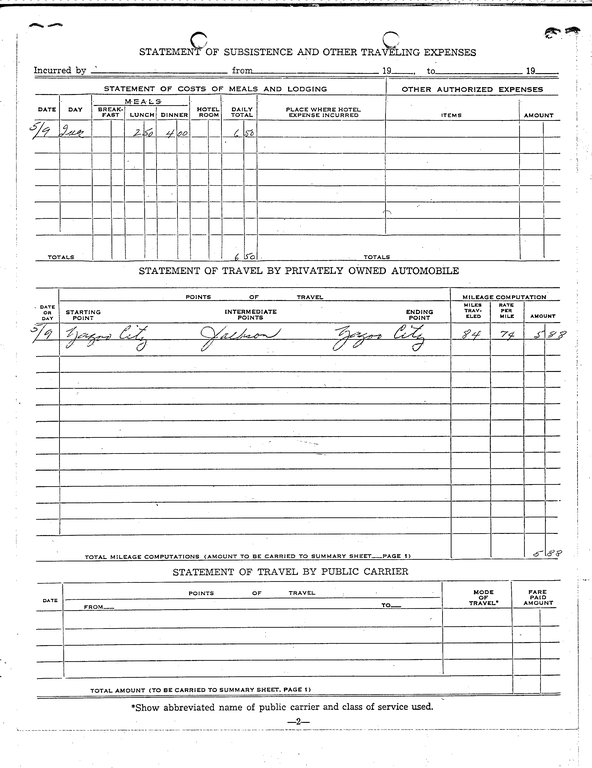 STATEMENT OF SUBSISTENCE AND OTHER TRAVELING EXPENSES
Incurred by from 19 , to 19
STATEMENT OF COSTS OF MEALS AND LODGING OTHER AUTHORIZED EXPENSES
MEALS
DATE DAY BREAK-FAST LUNCH DINNER HOTEL ROOM DAILY TOTAL PLACE WHERE HOTEL EXPENSE INCURRED ITEMS AMOUNT
5/9 2 50 4 00 6 50
TOTALS 6 50 TOTALS
STATEMENT OF TRAVEL BY PRIVATELY OWNED AUTOMOBILE
POINTS OF TRAVEL MILEAGE COMPUTATION
DATE OR DAY STARTING POINT INTERMEDIATE POINTS ENDING POINT MILES TRAV-ELED RATE PER MILE AMOUNT
5/9 Yazoo City Jackson Yazoo City 84 7¢ 5 88
TOTAL MILEAGE COMPUTATIONS (AMOUNT TO BE CARRIED TO SUMMARY SHEET—PAGE 1) 5 88
STATEMENT OF TRAVEL BY PUBLIC CARRIER
POINTS OF TRAVEL
DATE FROM— TO— MODE OF TRAVEL* FARE PAID AMOUNT
TOTAL AMOUNT (TO BE CARRIED TO SUMMARY SHEET, PAGE 1)
*Show abbreviated name of public carrier and class of service used.
—2—